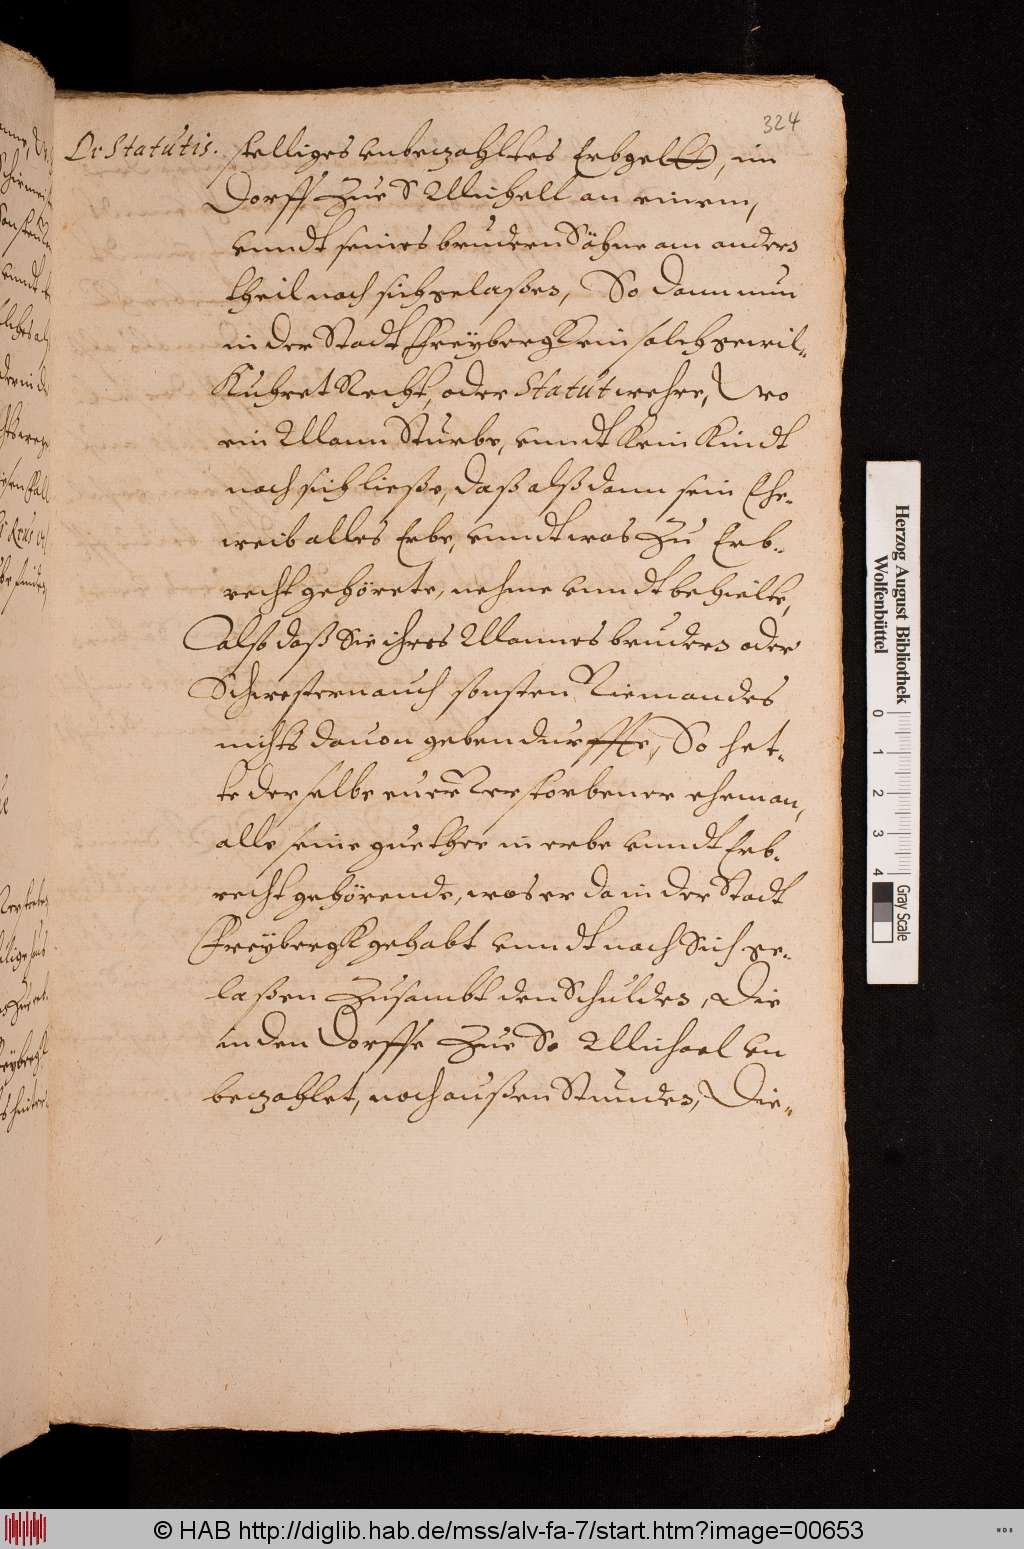 324
De Statutis. stelliges vnbetzahltes Erbgeltt, im
Dorff Zue S Michell an einem,
vnndt seines brudern Söhne am anders
theil nach sich gelaßen, So dann nun
in der Stadt Freybergk ein solch gewil-
Kuhret Recht, oder Statut wehre, wo
ein Mann Sturbe, vnndt Kein Kindt
nach sich ließe, daß alß dann sein Ehe-
weib alles Erbe, vnndt was Zu Erb-
recht gehörete, nehme vnndt behielte,
also daß Sie ihres Mannes bruders oder
Schwestern auch sonsten Niemandes
nichts dauon geben durffte, So het-
te derselbe euer Verstorbener eheman,
alle seine guether in erbe vnndt Erb-
recht gehörende, was er da in der Stadt
Freybergk gehabt vnndt nach Sich ge-
laßen Zusambt den Schulden, Die
in den Dorffe Zue S. Michael vn
betzahlet, noch außen Stunden, Die-
Herzog August Bibliothek
Wolfenbüttel
0 1 2 3 4
Gray Scale
© HAB http://diglib.hab.de/mss/alv-fa-7/start.htm?image=00653